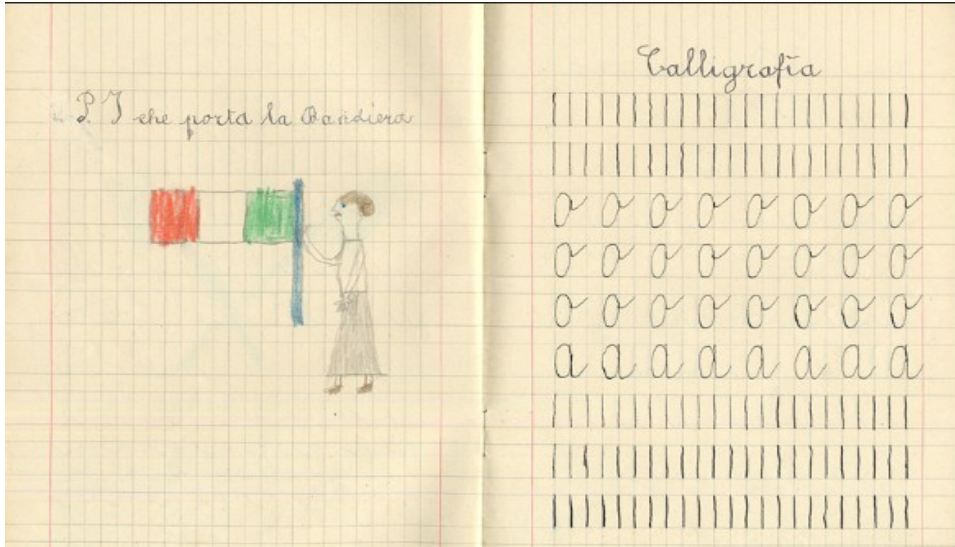 P. I che porta la Bandiera
Calligrafia
o o o o o o o o
o o o o o o o o
o o o o o o o o
a a a a a a a a